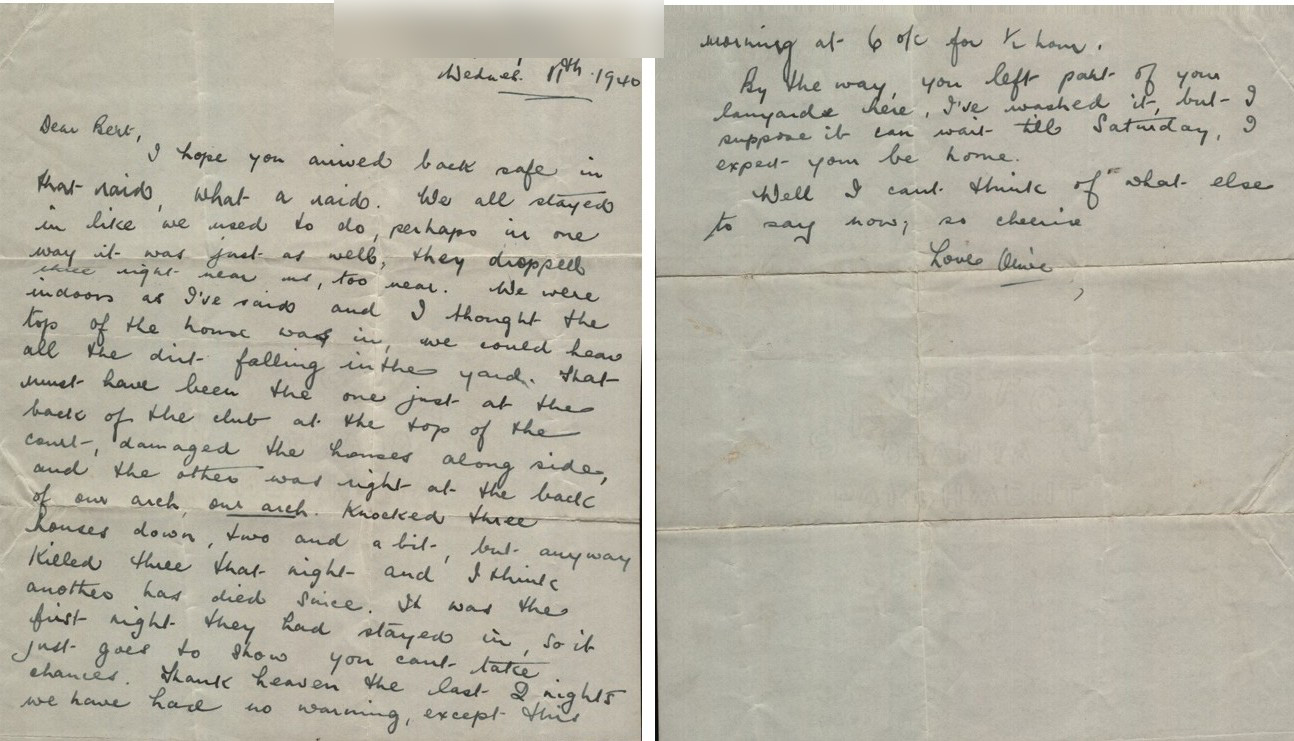 Wednes. 11th. 1940
Dear Bert,
I hope you arrived back safe in
that raid, what a raid. We all stayed
in like we used to do, perhaps in one
way it was just as well, they dropped
three right near us, too near. We were
indoors as I've said and I thought the
top of the house was in, we could hear
all the dirt falling in the yard. That
must have been the one just at the
back of the club at the top of the
court, damaged the houses along side,
and the other was right at the back
of our arch, our arch. Knocked three
houses down, two and a bit, but anyway
killed three that night and I think
another has died since. It was the
first night they had stayed in, so it
just goes to show you cant take
chances. Thank heaven the last 2 nights
we have had no warning, except this
morning at 6 o/c for ½ hour.
By the way, you left part of your
lanyard here, I've washed it, but I
suppose it can wait till Saturday, I
expect your be home.
Well I cant think of what else
to say now, so cheerie
Love Olive